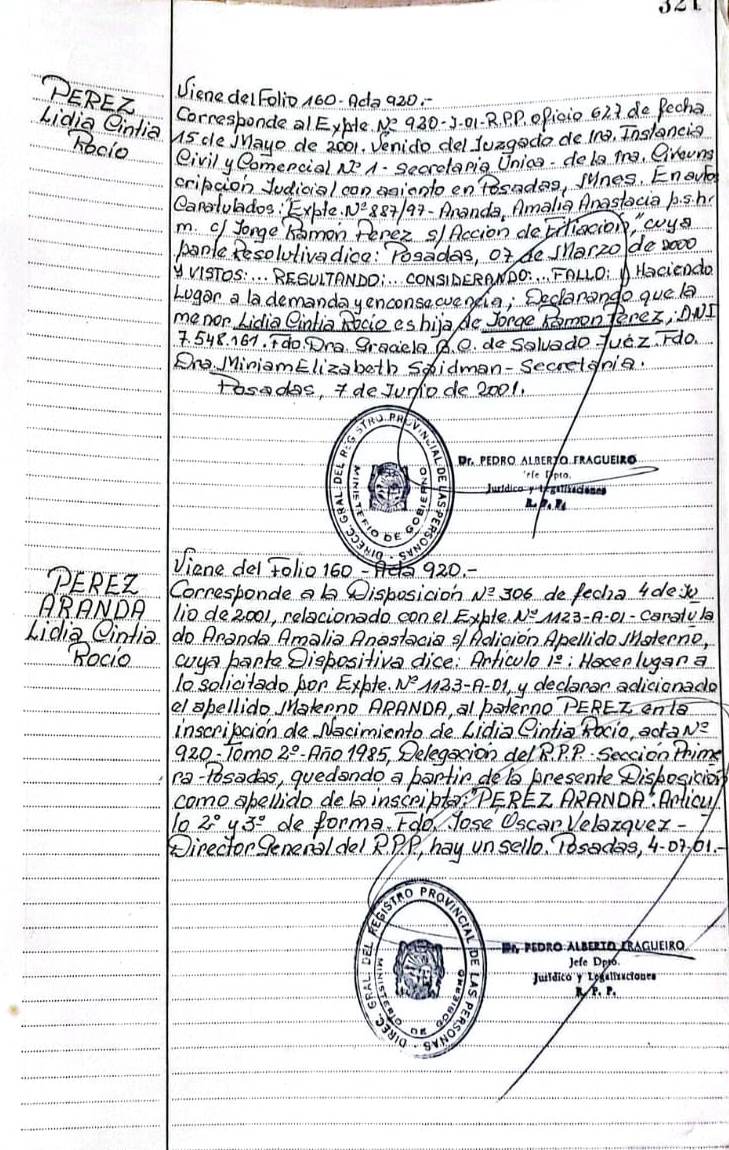 321
PEREZ
Lidia Cintia
Rocío
Viene del Folio 160 - Acta 920.-
Corresponde al Expte. Nº 920-J-01-R.P.P. oficio 627 de fecha
15 de Mayo de 2001. Venido del Juzgado de 1ra. Instancia
Civil y Comercial Nº 1 - Secretaria Única - de la 1ra. Circuns
cripción Judicial con asiento en Posadas, Mnes. En autos
Caratulados: "Expte. Nº 887/97 - Aranda, Amalia Anastacia p.s.h.
m. c/ Jorge Ramon Perez s/ Acción de Filiación," cuya
parte Resolutiva dice: Posadas, 07 de Marzo de 2000
Y VISTOS:... RESULTANDO:... CONSIDERANDO:... FALLO: I) Haciendo
Lugar a la demanda y en consecuencia; Declarando que la
menor Lidia Cintia Rocío es hija de Jorge Ramon Perez, DNI
7.548.161. Fdo. Dra. Graciela de Salvado - Juez. Fdo.
Dra. Miriam Elizabeth Saidman - Secretaria.
Posadas, 7 de Junio de 2001.
DIRECC. GRAL. DEL REGISTRO PROVINCIAL DE LAS PERSONAS
MINISTERIO DE GOBIERNO
Dr. PEDRO ALBERTO FRAGUEIRO
Jefe Dpto.
Jurídico y Legalizaciones
R. P. P.
PEREZ
ARANDA
Lidia Cintia
Rocío
Viene del Folio 160 - Acta 920.-
Corresponde a la Disposición Nº 306 de fecha 4 de Ju
lio de 2001, relacionado con el Expte. Nº 1123-A-01 - Caratula
do Aranda Amalia Anastacia s/ Adición Apellido Materno,
cuya parte Dispositiva dice: Artículo 1º: Hacer lugar a
lo solicitado por Expte. Nº 1123-A-01, y declarar adicionado
el apellido Materno ARANDA, al paterno PEREZ, en la
inscripción de Nacimiento de Lidia Cintia Rocío, acta Nº
920 - Tomo 2º - Año 1985, Delegación del R.P.P. - Sección Prime
ra - Posadas, quedando a partir de la presente Disposición
como apellido de la inscripta: "PEREZ ARANDA". Artícu
lo 2º y 3º de forma. Fdo. José Oscar Velazquez -
Director General del R.P.P, hay un sello. Posadas, 4-07-01.-
DIREC. GRAL. DEL REGISTRO PROVINCIAL DE LAS PERSONAS
MINISTERIO DE GOBIERNO
Dr. PEDRO ALBERTO FRAGUEIRO
Jefe Dpto.
Jurídico y Legalizaciones
R. P. P.